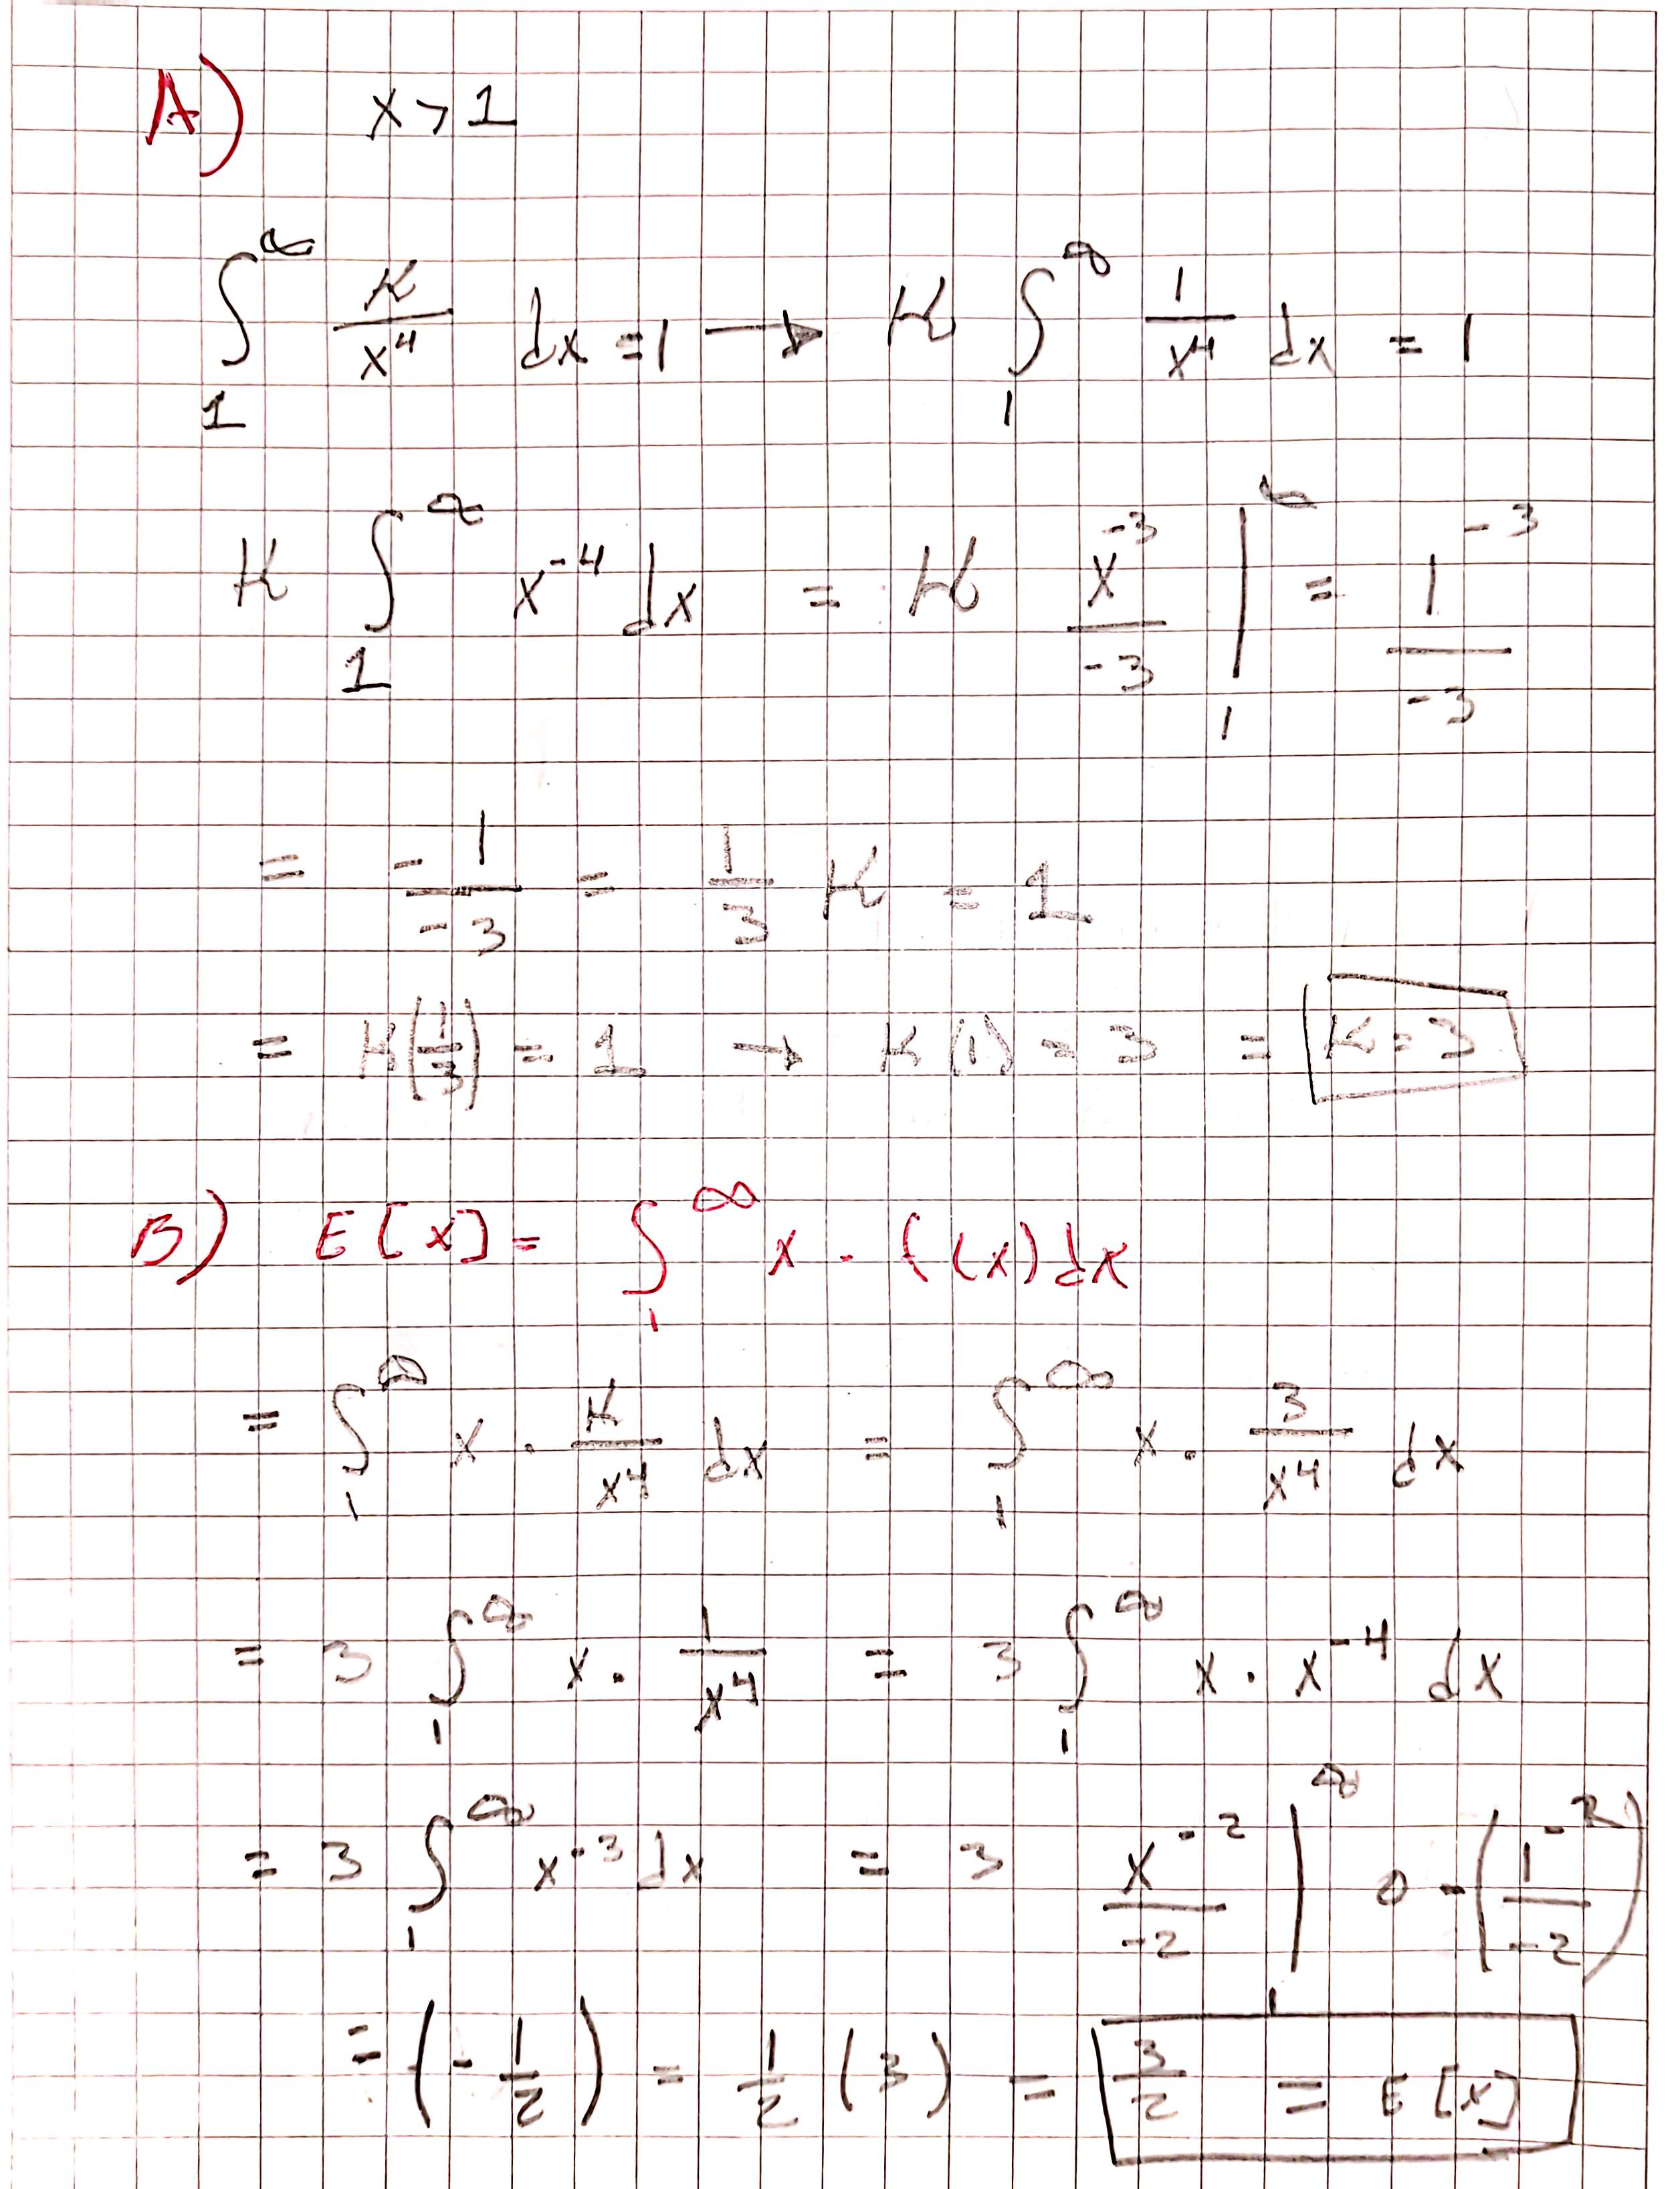 A) x > 1
∫₁^∞ K/x⁴ dx = 1 → K ∫₁^∞ 1/x⁴ dx = 1
K ∫₁^∞ x⁻⁴ dx = K x⁻³/-3 |₁^∞ = 1⁻³/-3
= -1/-3 = 1/3 K = 1
= K(1/3) = 1 → K(1) = 3 = K = 3
B) E[x] = ∫₁^∞ x · f(x) dx
= ∫₁^∞ x · K/x⁴ dx = ∫₁^∞ x · 3/x⁴ dx
= 3 ∫₁^∞ x · 1/x⁴ = 3 ∫₁^∞ x · x⁻⁴ dx
= 3 ∫₁^∞ x⁻³ dx = 3 x⁻²/-2 |₁^∞ 0 - (1⁻²/-2)
= (-1/2) = 1/2 (3) = 3/2 = E[x]